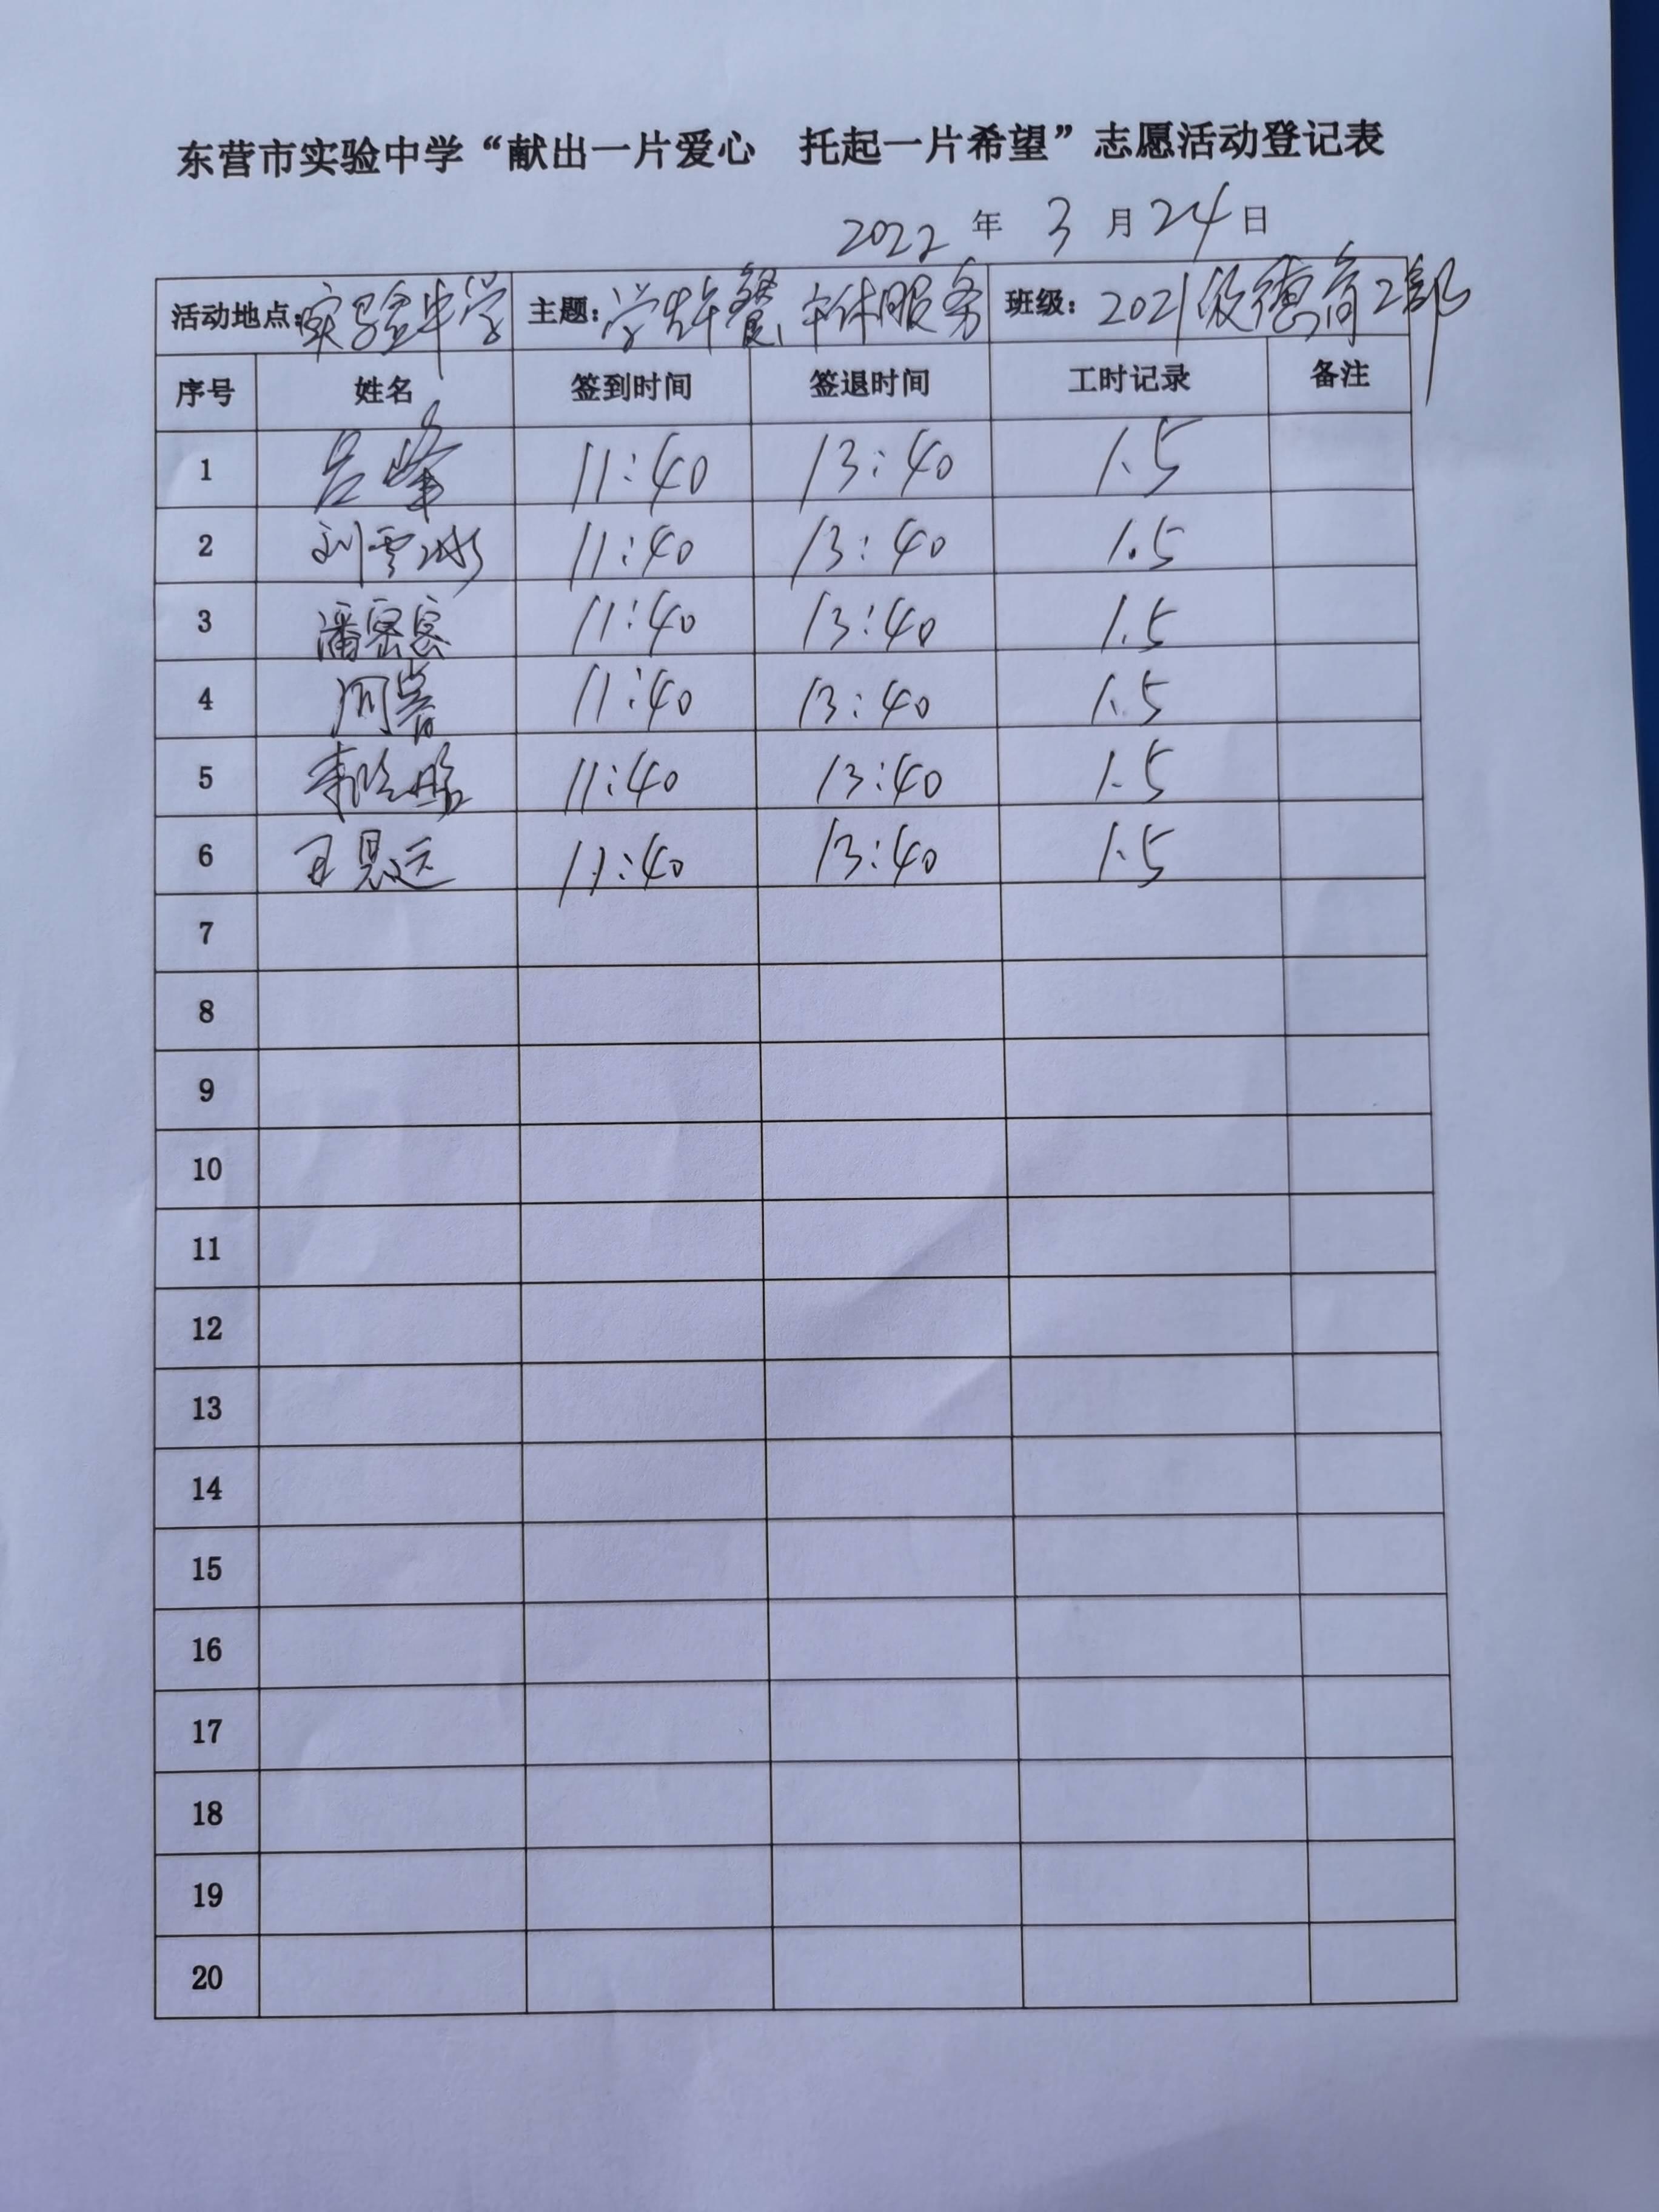 东营市实验中学“献出一片爱心 托起一片希望”志愿活动登记表
2022 年 3 月 24 日
活动地点:实验中学 主题:学生午餐、午休服务 班级:2021级德育2部
序号 姓名 签到时间 签退时间 工时记录 备注
1 吕峰 11:40 13:40 1.5
2 刘雪冰 11:40 13:40 1.5
3 潘密密 11:40 13:40 1.5
4 11:40 13:40 1.5
5 11:40 13:40 1.5
6 王思远 11:40 13:40 1.5
7
8
9
10
11
12
13
14
15
16
17
18
19
20